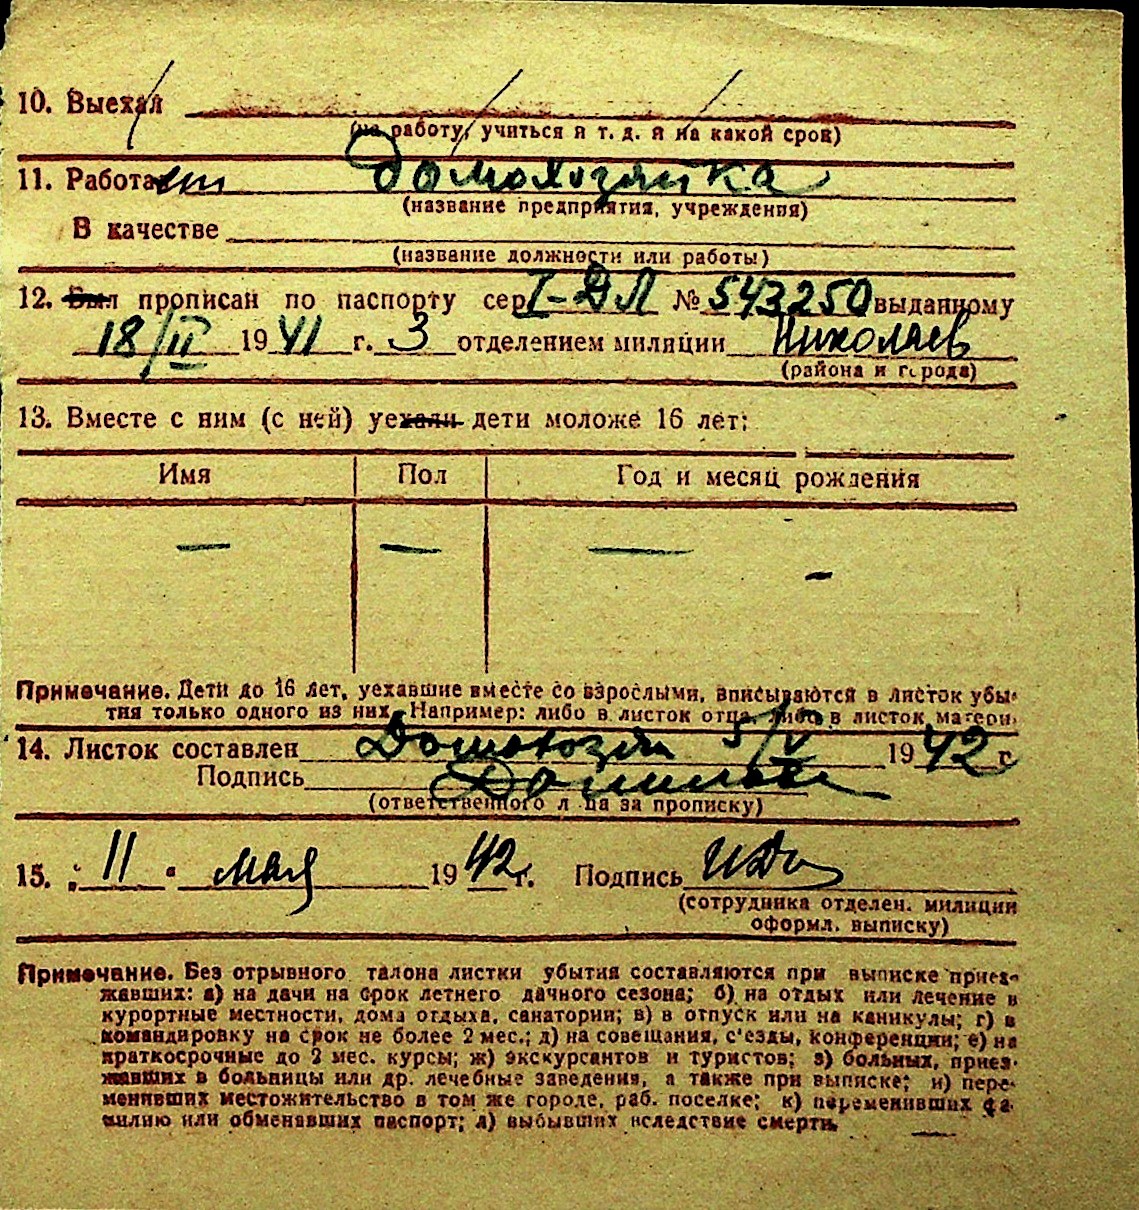 10. Выехал
(на работу, учиться и т. д. и на какой срок)
11. Работа домохозяйка
(название предприятия, учреждения)
В качестве
(название должности или работы)
12. Был прописан по паспорту сер I-ДЛ № 543250 выданному
18/II 1941 г. 3 отделением милиции Николаев
(района и города)
13. Вместе с ним (с ней) уехали дети моложе 16 лет:
Имя Пол Год и месяц рождения
— — —
Примечание. Дети до 16 лет, уехавшие вместе со взрослыми, вписываются в листок убы-
тия только одного из них. Например: либо в листок отца, либо в листок матери.
14. Листок составлен 5/V 1942 г
Подпись
(ответственного лица за прописку)
15. „11" мая 1942 г. Подпись
(сотрудника отделен. милиции
оформл. выписку)
Примечание. Без отрывного талона листки убытия составляются при выписке приез-
жавших: а) на дачи на срок летнего дачного сезона; б) на отдых или лечение в
курортные местности, дома отдыха, санатории; в) в отпуск или на каникулы; г) в
командировку на срок не более 2 мес.; д) на совещания, с'езды, конференции; е) на
краткосрочные до 2 мес. курсы; ж) экскурсантов и туристов; з) больных, приез-
жавших в больницы или др. лечебные заведения, а также при выписке; и) пере-
менивших местожительство в том же городе, раб. поселке; к) переменивших фа-
милию или обменявших паспорт; л) выбывших вследствие смерти.